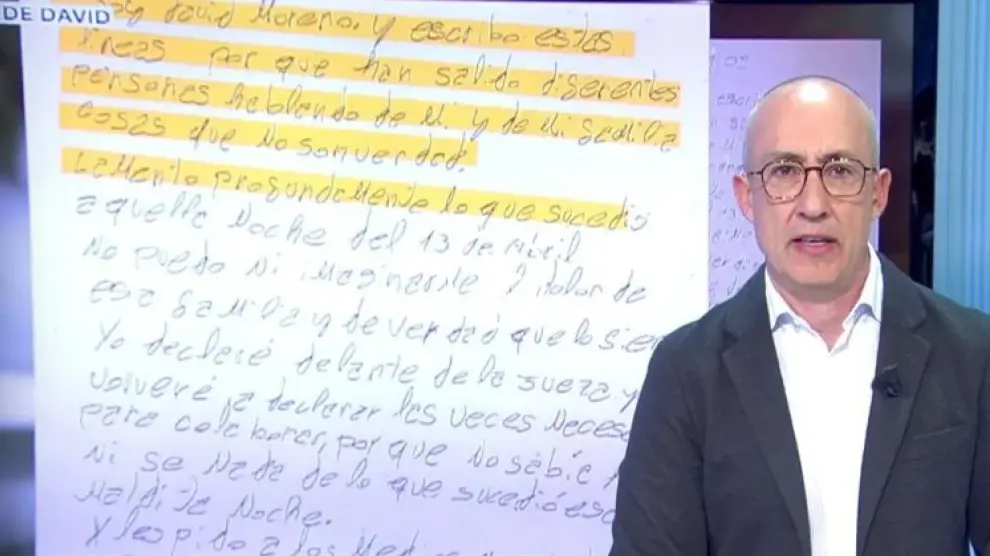 DE DAVID
Soy David Moreno, y escribo estas
lineas por que han salido diferentes
personas hablando de Mi y de Mi familia
cosas que No son verdad.
Lamento profundamente lo que sucedió
aquella Noche del 13 de Abril
No puedo Ni imaginarme dolor de
esa familia y de verdad que lo
Yo declaré delante de la jueza y
volveré a declarar las veces
para colaborar, por que No sabía
Ni se Nada de lo que sucedió
Maldita Noche.
Y les pido a los